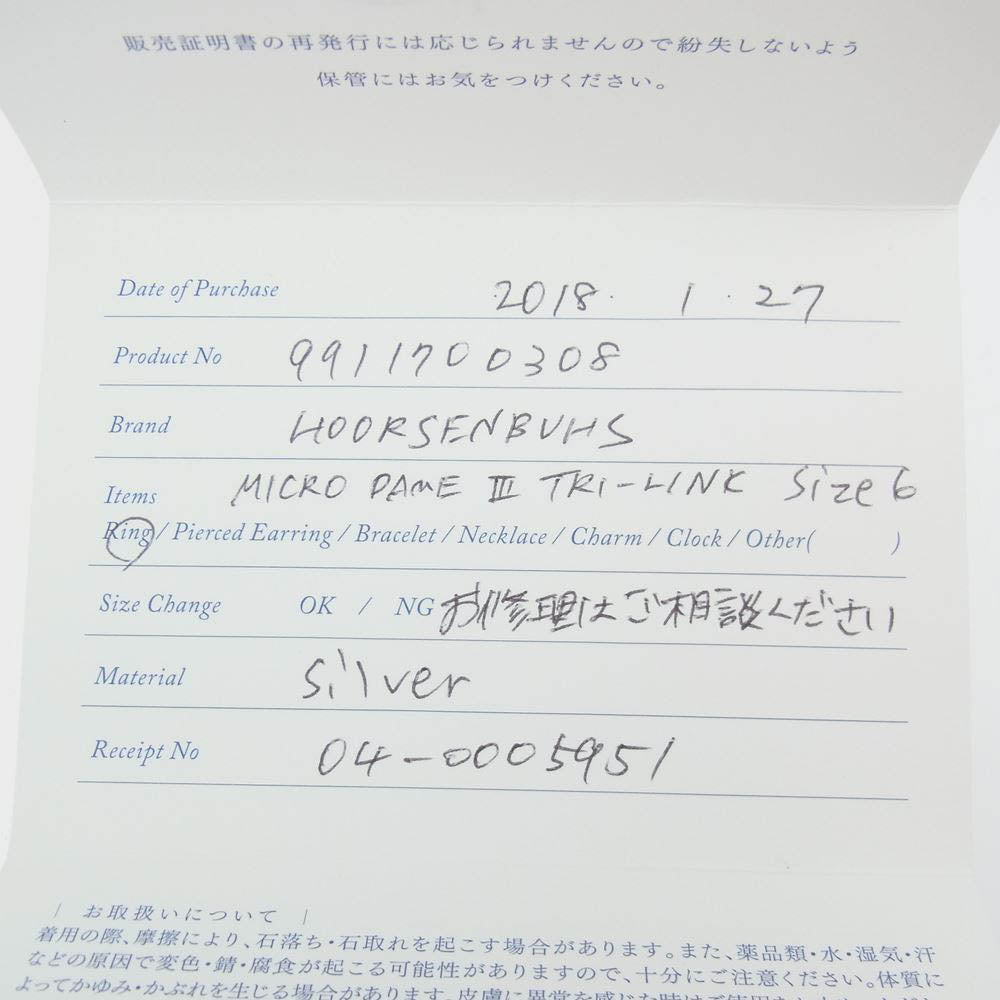 販売証明書の再発行には応じられませんので紛失しないよう
保管にはお気をつけください。
Date of Purchase 2018. 1. 27
Product No 9911700308
Brand HOORSENBUHS
Items MICRO DAME III TRI-LINK Size 6
Ring / Pierced Earring / Bracelet / Necklace / Charm / Clock / Other( )
Size Change OK / NG お修理はご相談ください
Material Silver
Receipt No 04-0005951
| お取扱いについて |
着用の際、摩擦により、石落ち・石取れを起こす場合があります。また、薬品類・水・湿気・汗
などの原因で変色・錆・腐食が起こる可能性がありますので、十分にご注意ください。体質に
よってかゆみ・かぶれを生じる場合があります。皮膚に異常を感じた時はご使用を